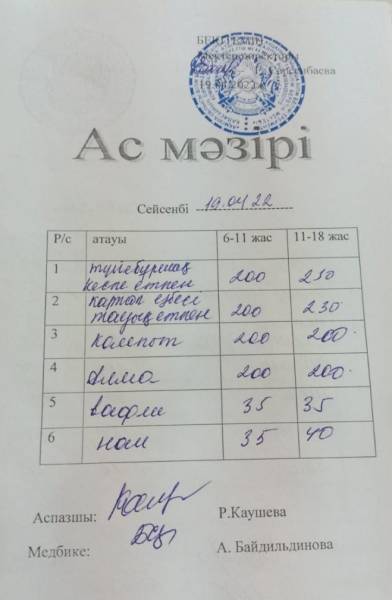 БЕКІТЕМІН
Мектеп директоры
19.04.2022
Ас мәзірі
Сейсенбі 19.04 22
Р/с атауы 6-11 жас 11-18 жас
1 түйебұршақ кеспе етпен 200 250
2 картоп езбесі тауық етпен 200 230
3 компот 200 200
4 Алма 200 200
5 вафли 35 35
6 нан 35 40
Аспазшы: Р.Каушева
Медбике: А. Байдильдинова